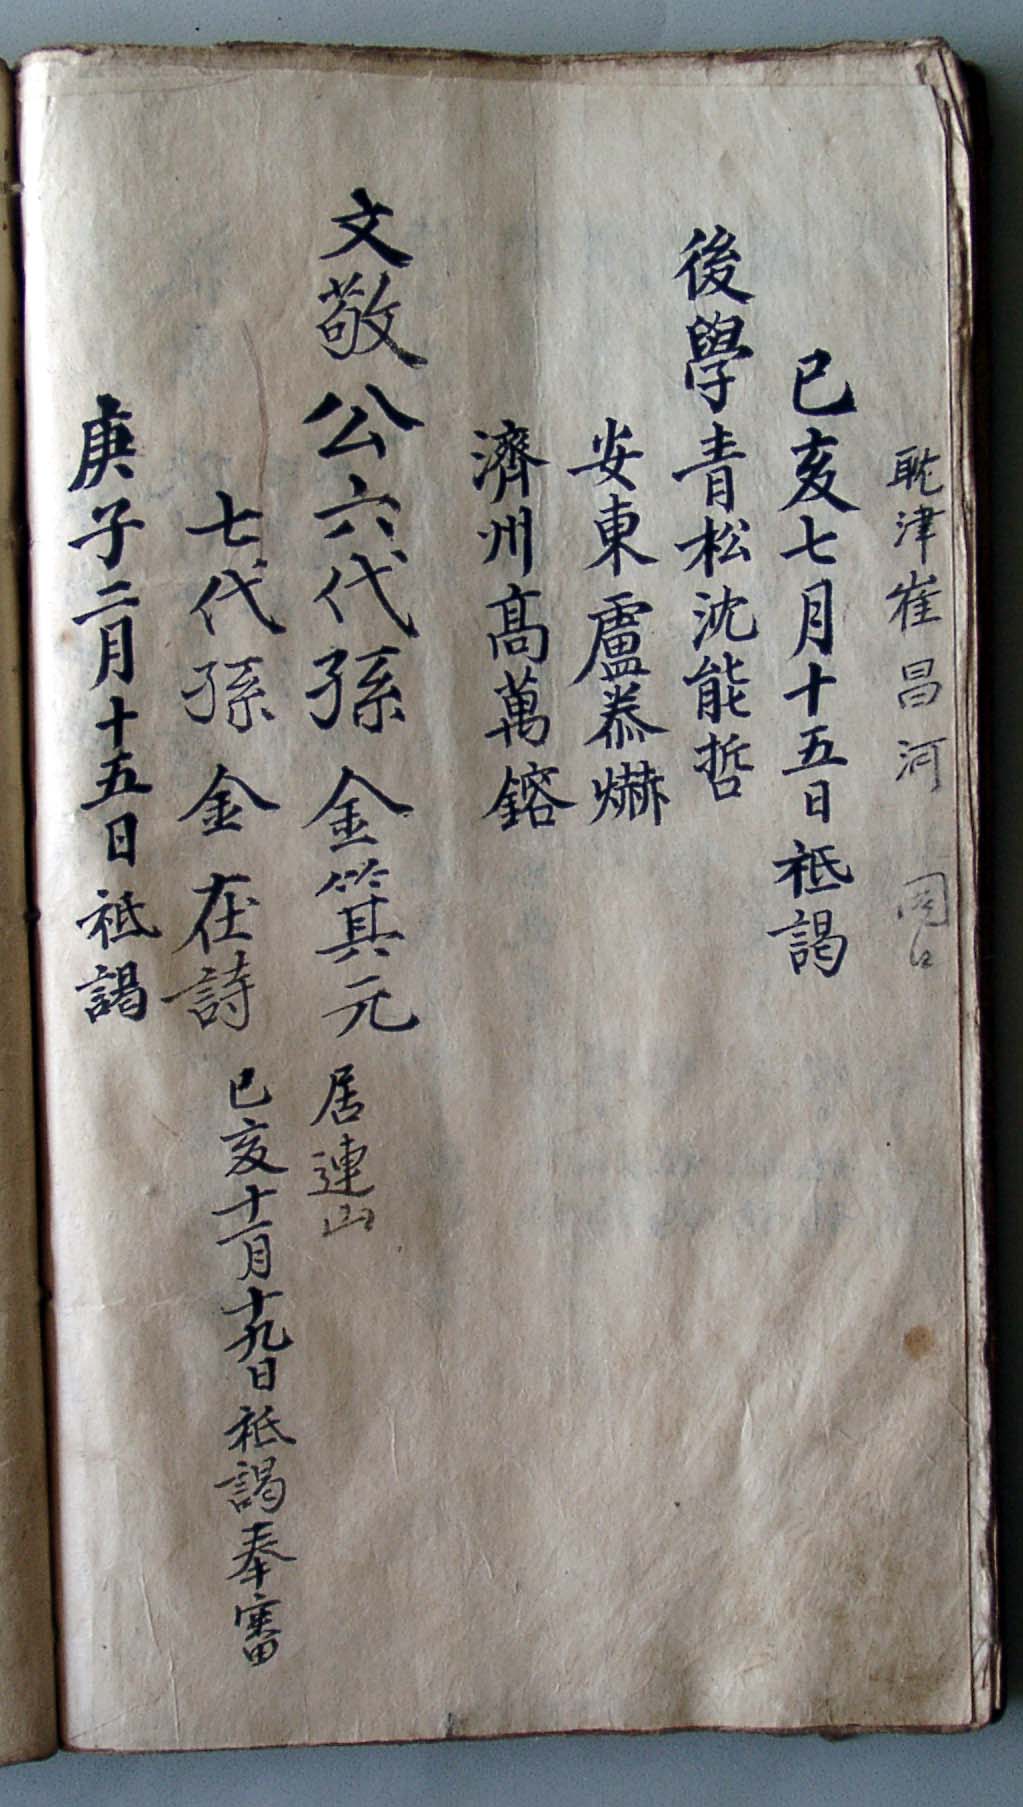 耽津崔昌河 同日
己亥七月十五日祗謁
後學青松沈能哲
安東盧泰爀
濟州高萬鎔
文敬公六代孫金箕元 居連山
七代孫金在詩 己亥十一月十九日祗謁奉審
庚子二月十五日祗謁